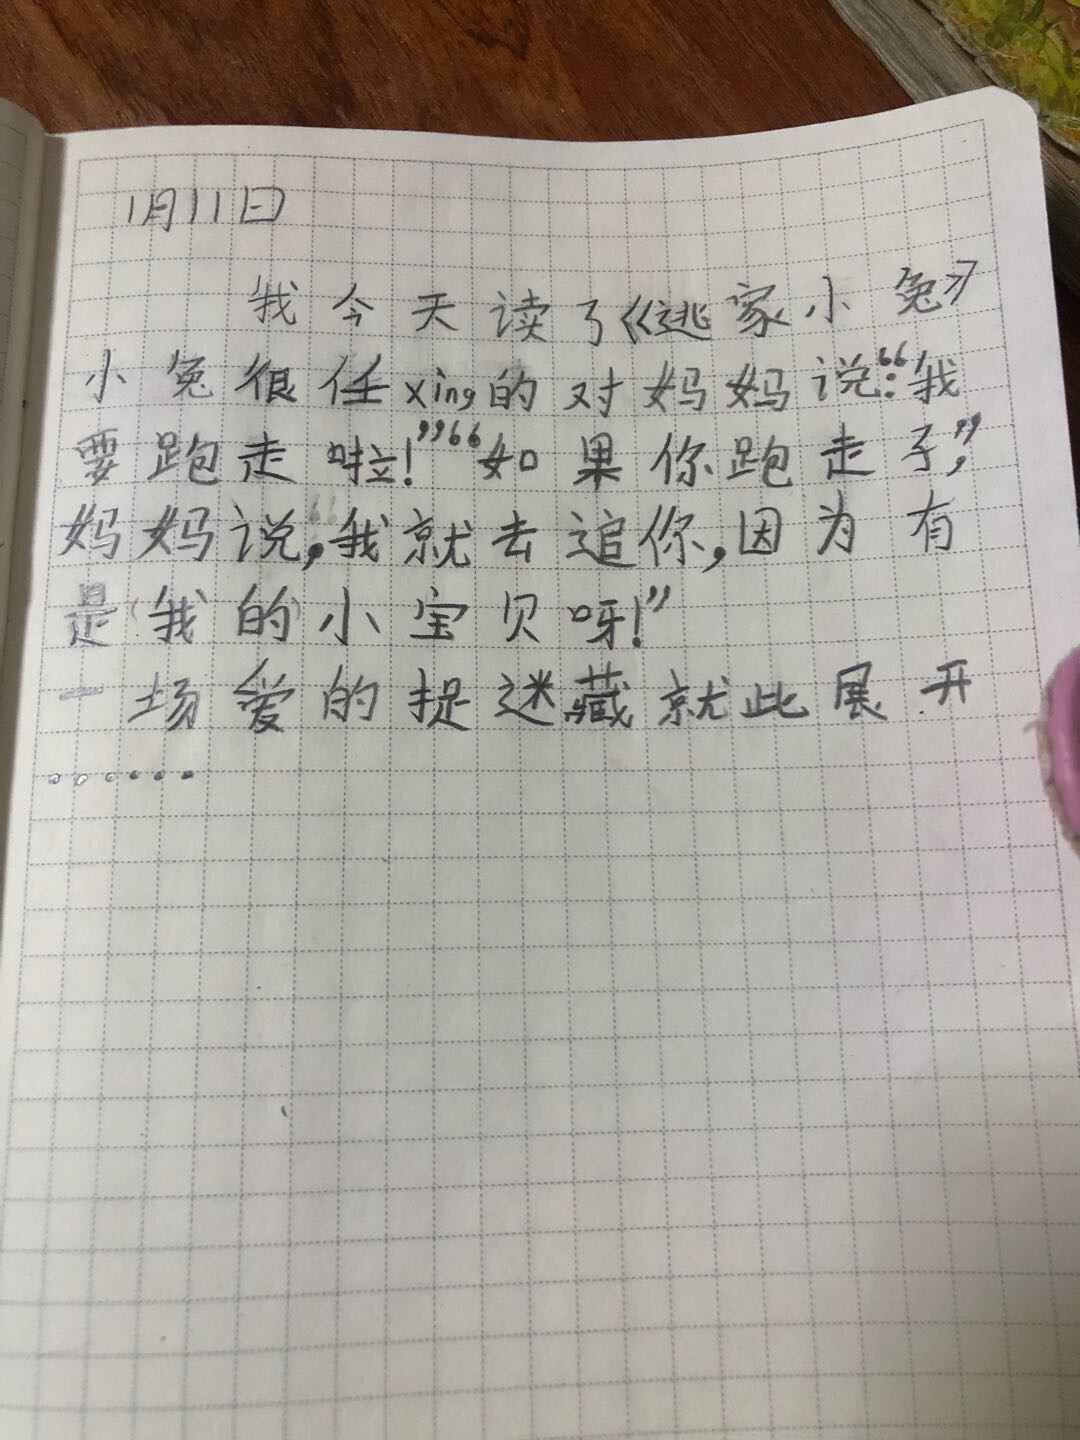 1月11日
我今天读了《逃家小兔》
小兔很任xing的对妈妈说:“我
要跑走啦!”“如果你跑走了,”
妈妈说,“我就去追你,因为有
是我的小宝贝呀!”
一场爱的捉迷藏就此展开
……